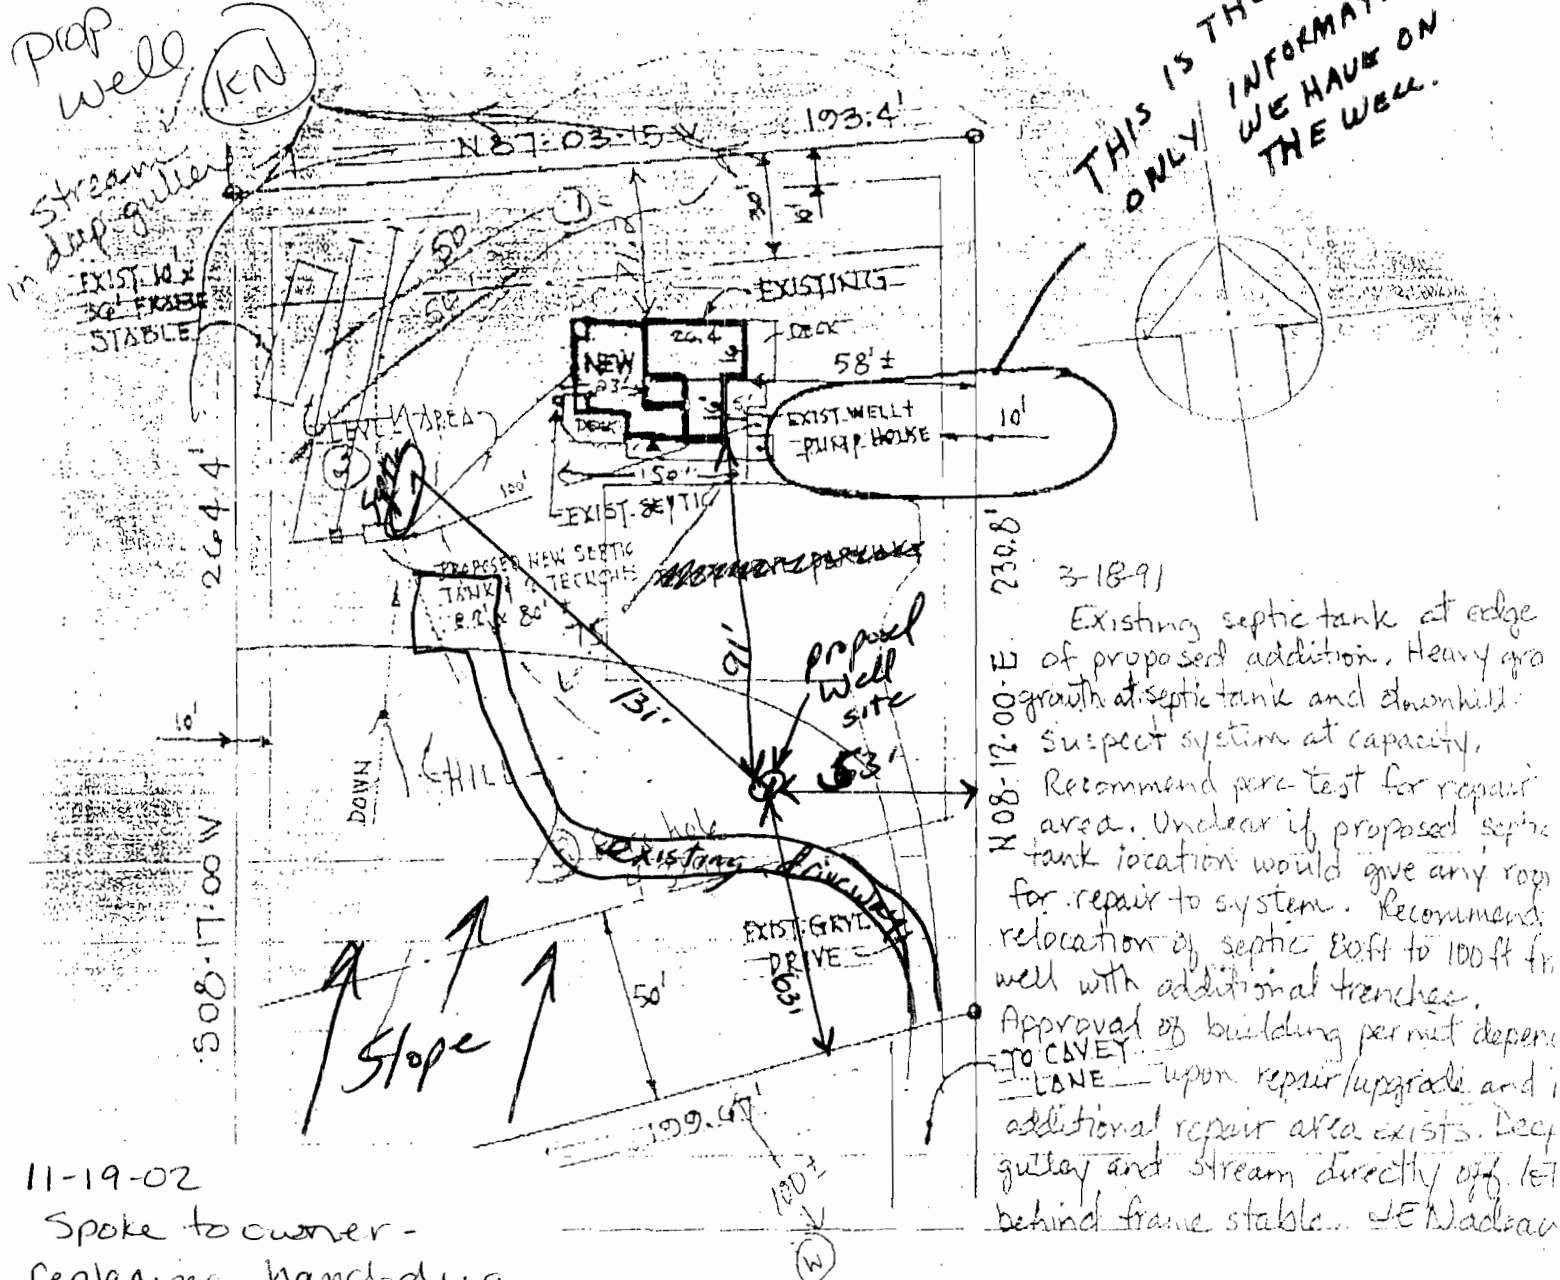 prop
well
KN
stream
in deep gulley
THIS IS THE
ONLY INFORMAT
WE HAVE ON
THE WELL.
N87-03-15-W
193.4'
30'
10'
71.2
1
50
50'
EXIST. 10' x
36' FRAME
STABLE
EXISTING
DECK
26.4
NEW
23'
DECK
58' ±
EXIST. WELL +
PUMP HOUSE
10'
LEVEL AREA
100'
150'
EXIST. SEPTIC
264.4'
PROPOSED NEW SEPTIC
TANK
x 80'
75
91'
131'
proposed
well
site
53'
N08-12-00-E 230.8'
10'
DOWN
HILL
hole
existing driveway
EXIST. GRVL
DRIVE
63'
S08-17-00W
Slope
50'
199.67'
100'±
W
TO CAVEY
LANE
3-18-91
Existing septic tank at edge
of proposed addition. Heavy gro
growth at septic tank and downhill.
suspect system at capacity.
Recommend perc test for repair
area. Unclear if proposed septic
tank location would give any room
for repair to system. Recommend
relocation of septic 80ft to 100ft fr
well with additional trenches.
Approval of building permit depen
upon repair/upgrade and i
additional repair area exists. Deep
gulley and stream directly off
behind frame stable. JE Nadeau
11-19-02
Spoke to owner -
replacing hand-dug